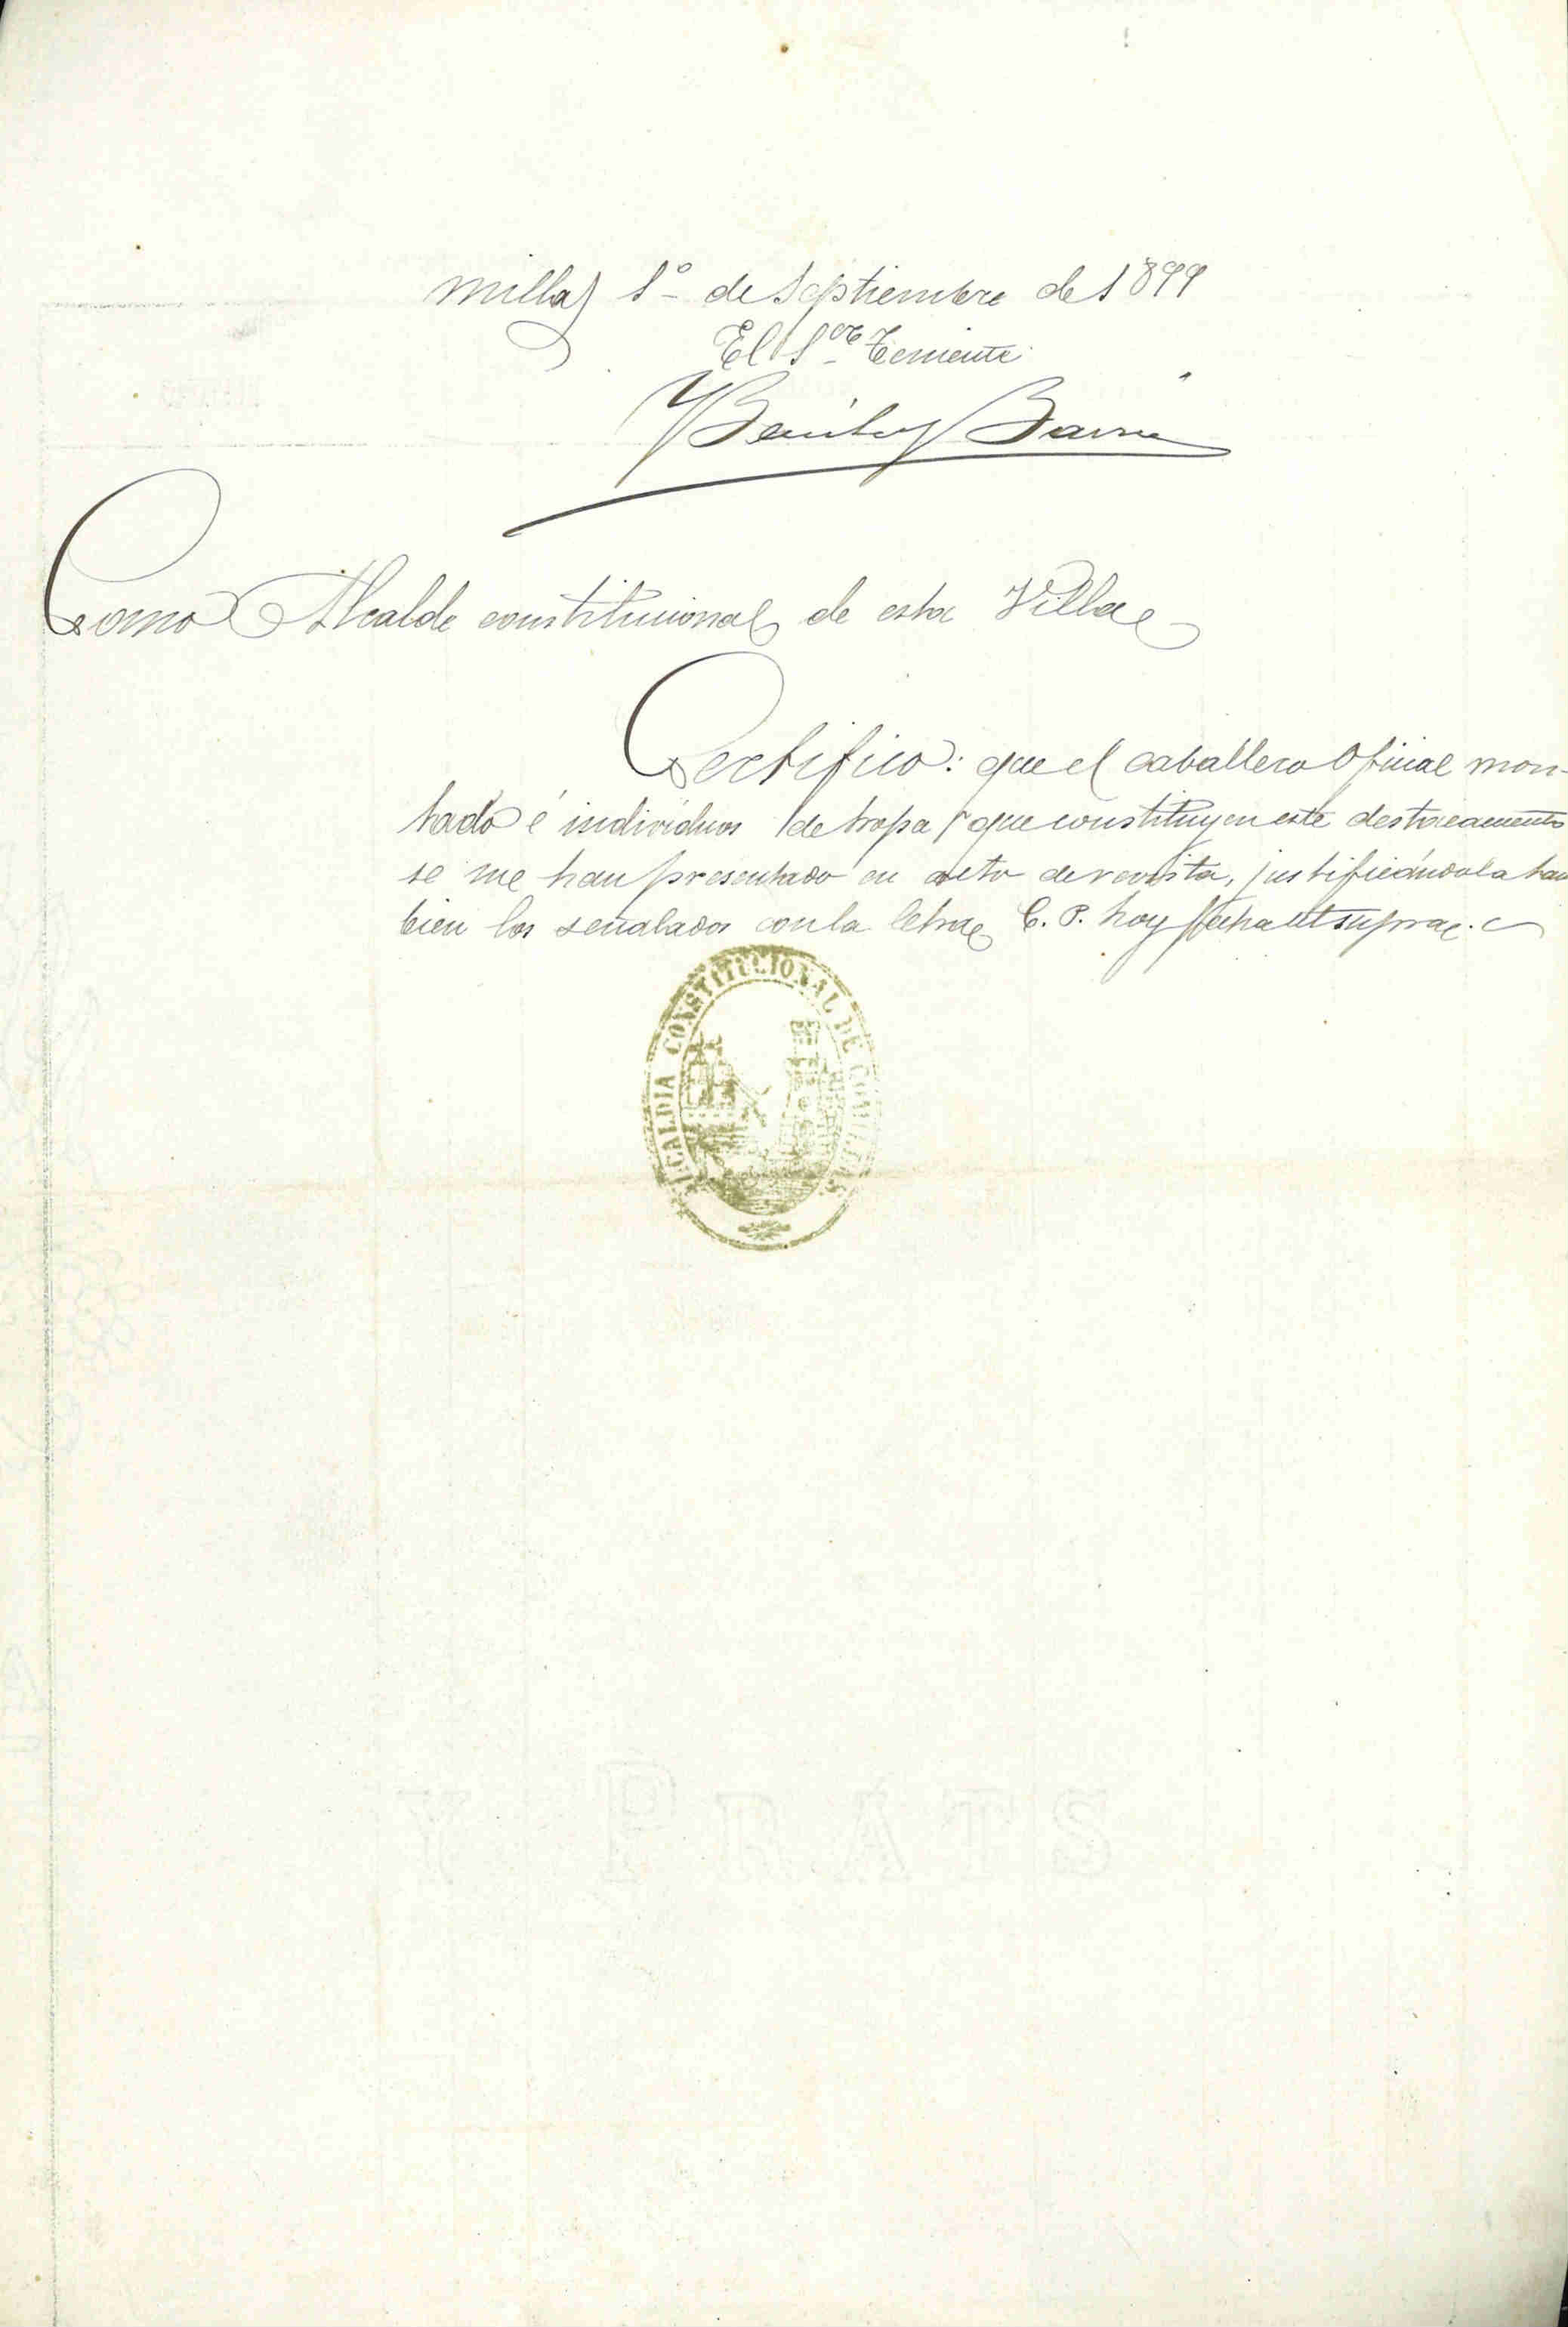 millas 1º de Septiembre de 1899
El 1er Teniente
Benito
Como Alcalde constitucional de esta Villa
Certifico: que el caballero Oficial mon-
tado é individuos de tropa que constituyen este destacamento
se me han presentado en acto de revista, justificándola tam
bien los señalados con la letra C. P. hoy fecha ut supra.
ALCALDIA CONSTITUCIONAL DE COMILLAS
Y PRATS